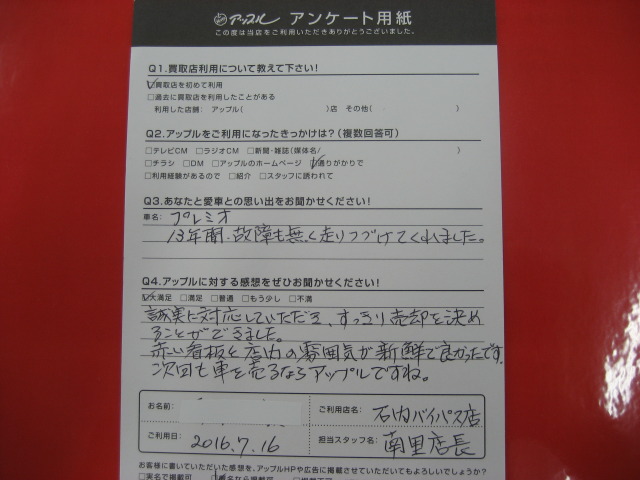 アップル アンケート用紙
この度は当店をご利用いただきありがとうございました。
Q1.買取店利用について教えて下さい!
☑買取店を初めて利用
□過去に買取店を利用したことがある
利用した店舗: アップル( )店 その他( )
Q2.アップルをご利用になったきっかけは?(複数回答可)
□テレビCM □ラジオCM □新聞・雑誌(媒体名/ )
□チラシ □DM □アップルのホームページ ☑通りがかりで
□利用経験があるので □紹介 □スタッフに誘われて
Q3.あなたと愛車との思い出をお聞かせください!
車名: プレミオ
13年間、故障も無く走りつづけてくれました。
Q4.アップルに対する感想をぜひお聞かせください!
☑大満足 □満足 □普通 □もう少し □不満
誠実に対応していただき、すっきり売却を決め
ることができました。
赤い看板と店内の雰囲気が新鮮で良かったです。
次回も車を売るならアップルですね。
お名前:
ご利用店名: 石内バイパス店
ご利用日: 2016.7.16
担当スタッフ名: 南里店長
お客様に書いていただいた感想を、アップルHPや広告に掲載させていただいてもよろしいでしょうか?
□実名で掲載可 ☑匿名なら掲載可